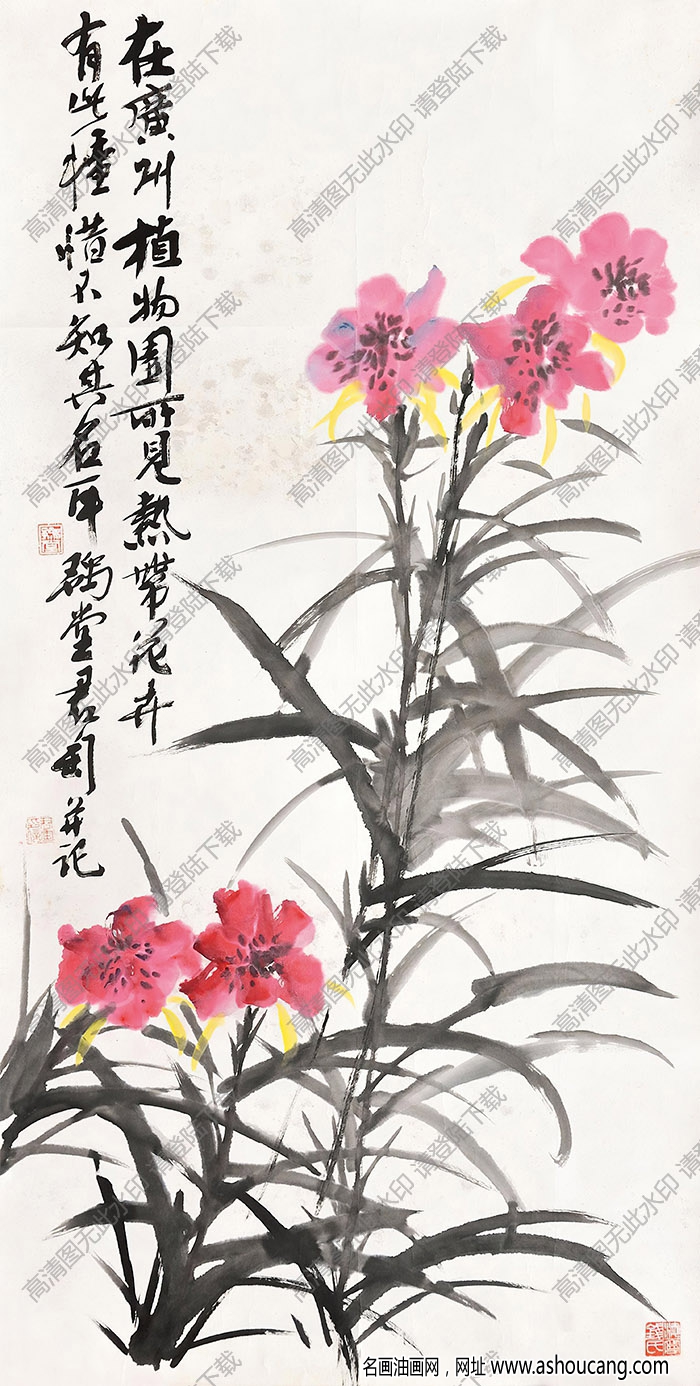 在廣州植物園所見熱帶花卉
有此種惜不知其名耳 鐵堂君匋并记
高清图无此水印 请登陆下载
名画油画网，网址 www.ashoucang.com